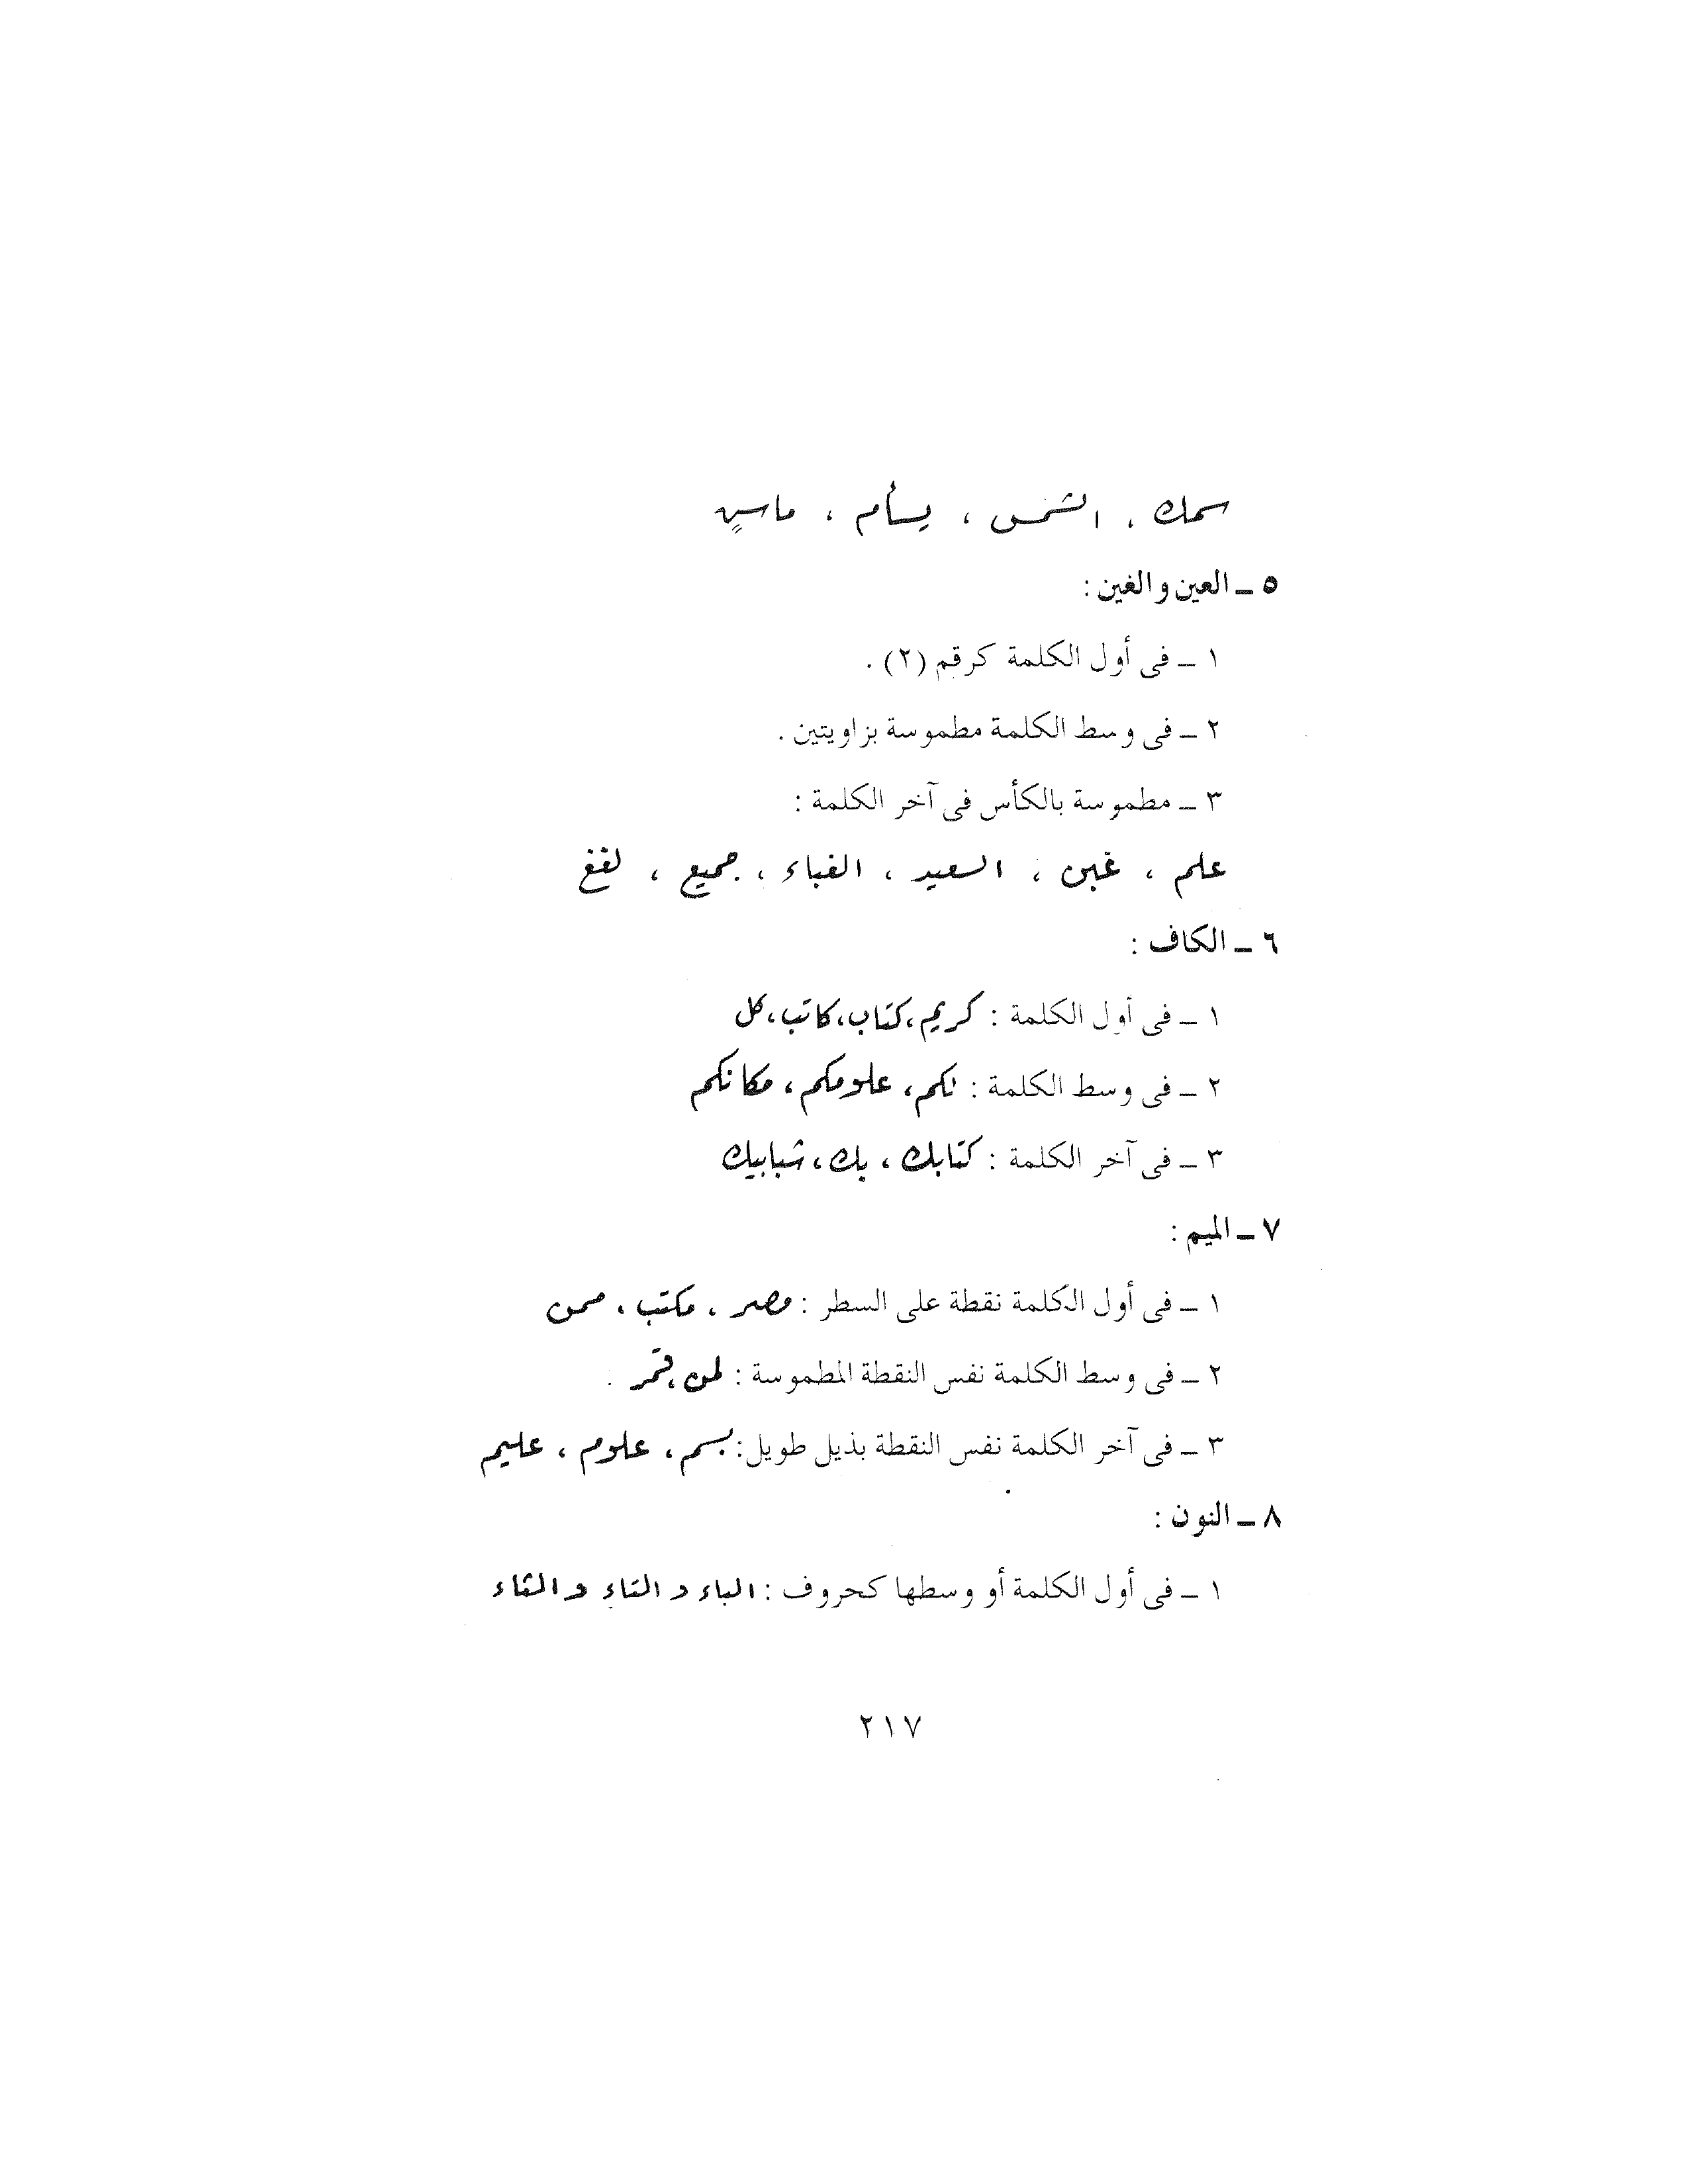 سمك ، الشمس ، يسأم ، ماسيٍ
٥ ـ العين والغين :
١ ـ فى أول الكلمة كرقم (٢) .
٢ ـ فى وسط الكلمة مطموسة بزاويتين .
٣ ـ مطموسة بالكأس فى آخر الكلمة :
علم ، غبن ، السعيد ، الغباء ، جميع ،
٦ ـ الكاف :
١ ـ فى أول الكلمة : كريم ، كتاب ، كاتب ، كل
٢ ـ فى وسط الكلمة : نكم ، علومكم ، مكانكم
٣ ـ فى آخر الكلمة : كتابك ، بك ، شبابيك
٧ ـ الميم :
١ ـ فى أول الكلمة نقطة على السطر : مصر ، مكتب ، ممن
٢ ـ فى وسط الكلمة نفس النقطة المطموسة : لمن ، قمر .
٣ ـ فى آخر الكلمة نفس النقطة بذيل طويل : بسم ، علوم ، عليم
٨ ـ النون :
١ ـ فى أول الكلمة أو وسطها كحروف : الباء و التاء و الثاء
٢١٧